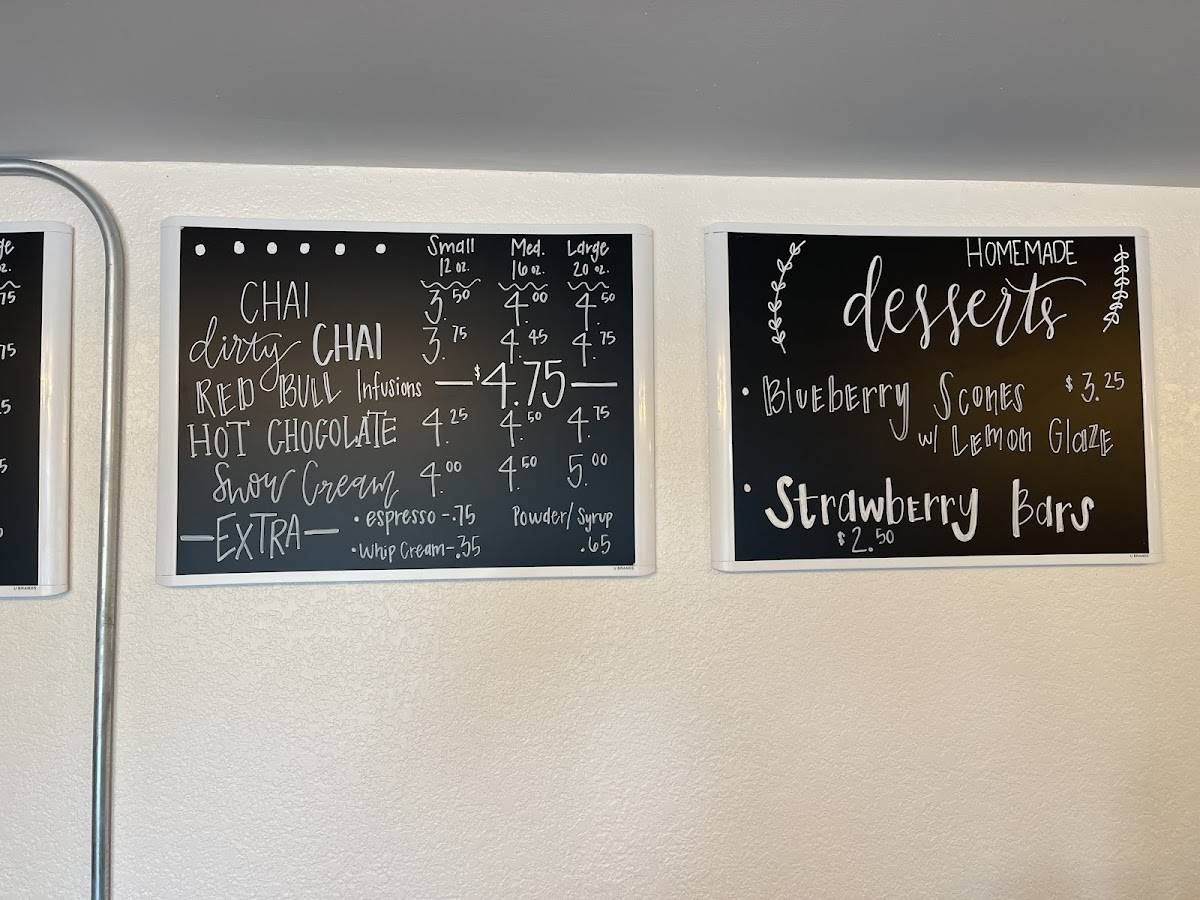 ge
z.
75
75
5
5
U BRANDS
Small Med. Large
12 oz. 16 oz. 20 oz.
CHAI 3.50 4.00 4.50
dirty CHAI 3.75 4.45 4.75
RED BULL Infusions — $4.75 —
HOT CHOCOLATE 4.25 4.50 4.75
Snow Cream 4.00 4.50 5.00
— EXTRA — • espresso - .75 Powder/Syrup
• Whip Cream - .35 .65
U BRANDS
HOMEMADE
desserts
• Blueberry Scones $3.25
w/ Lemon Glaze
• Strawberry Bars
$2.50
U BRANDS